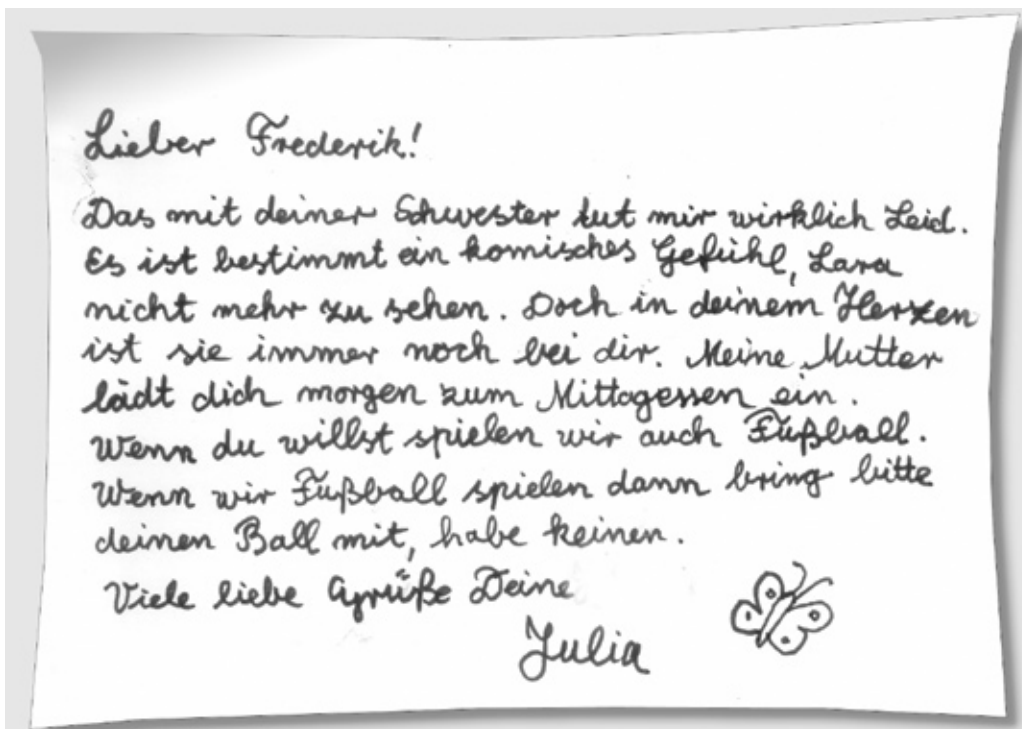 Lieber Frederik!
Das mit deiner Schwester tut mir wirklich Leid.
Es ist bestimmt ein komisches Gefühl, Lara
nicht mehr zu sehen. Doch in deinem Herzen
ist sie immer noch bei dir. Meine Mutter
lädt dich morgen zum Mittagessen ein.
Wenn du willst spielen wir auch Fußball.
Wenn wir Fußball spielen dann bring bitte
deinen Ball mit, habe keinen.
Viele liebe Grüße Deine
Julia